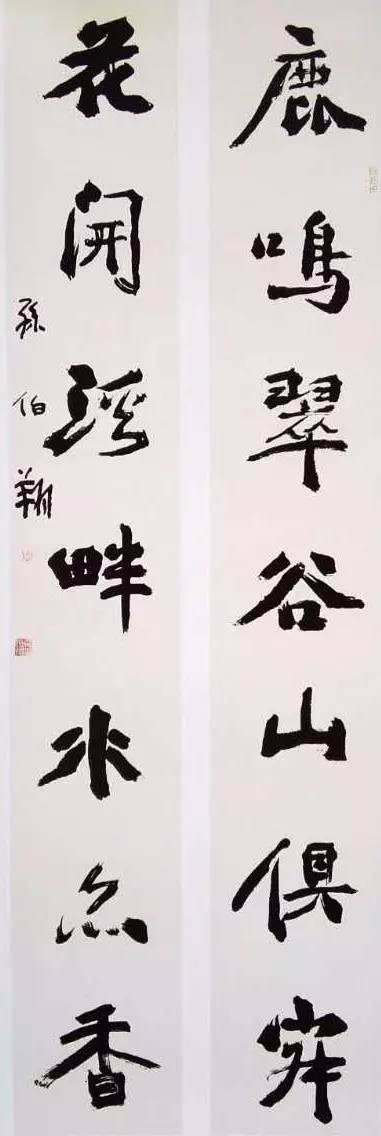 鹿鳴翠谷山俱
花開溪畔水亦香
孫伯翔